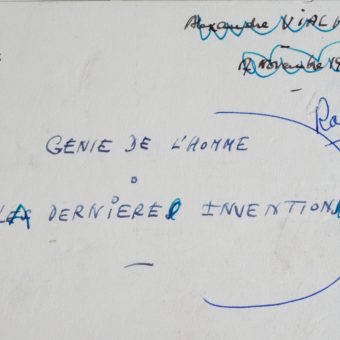 Alexandre VIALA
17 Novembre 19
Ra
GÉNIE DE L'HOMME
LA DERNIERE INVENTION